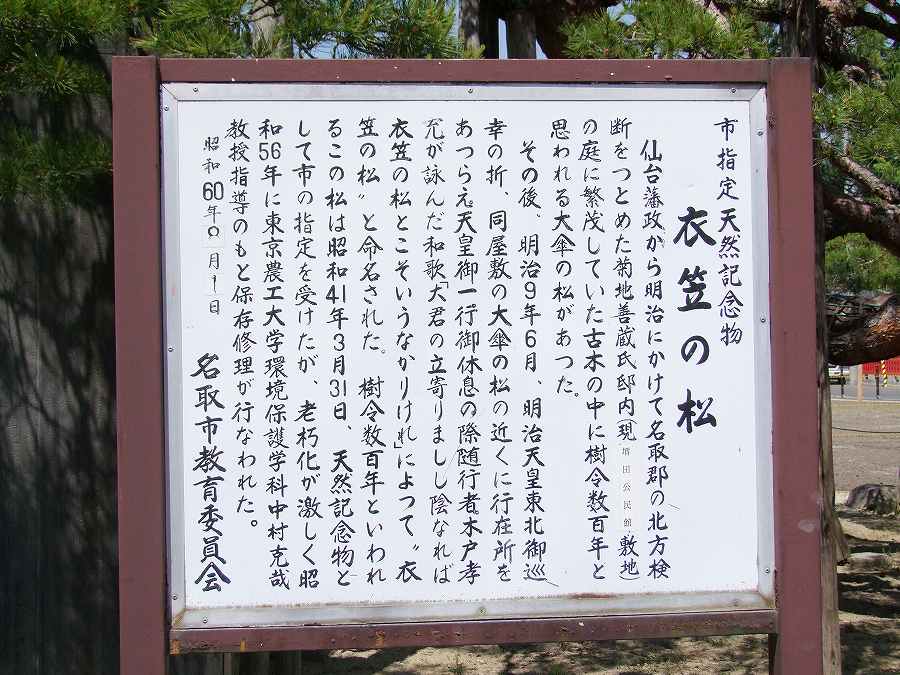 市指定 天然記念物
衣笠の松
仙台藩政から明治にかけて名取郡の北方検
断をつとめた菊地善蔵氏邸内(現増田公民館敷地)
の庭に繁茂していた古木の中に樹令数百年と
思われる大傘の松があつた。
その後、明治9年6月、明治天皇東北御巡
幸の折、同屋敷の大傘の松の近くに行在所を
あつらえ天皇御一行御休息の際随行者木戸孝
允が詠んだ和歌「大君の立寄りましし陰なれば
衣笠の松とこそいうなかりけれ」によつて〝衣
笠の松〟と命名された。樹令数百年といわれ
るこの松は昭和41年3月31日、天然記念物と
して市の指定を受けたが、老朽化が激しく昭
和56年に東京農工大学環境保護学科中村克哉
教授指導のもと保存修理が行なわれた。
昭和60年 月 日
名取市教育委員会